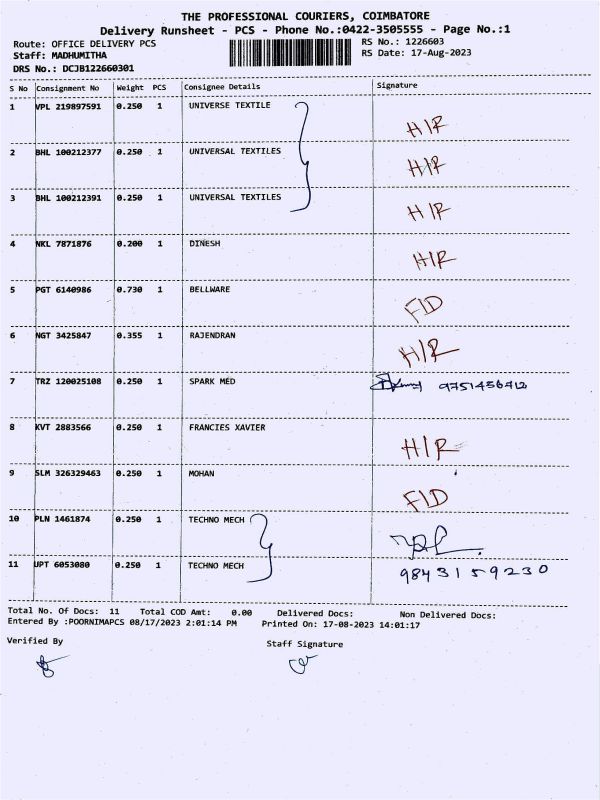 THE PROFESSIONAL COURIERS, COIMBATORE
Delivery Runsheet - PCS - Phone No.:0422-3505555 - Page No.:1
Route: OFFICE DELIVERY PCS RS No.: 1226603
Staff: MADHUMITHA RS Date: 17-Aug-2023
DRS No.: DCJB122660301
S No Consignment No Weight PCS Consignee Details Signature
1 VPL 219897591 0.250 1 UNIVERSE TEXTILE
H/R
2 BHL 100212377 0.250 1 UNIVERSAL TEXTILES
H/R
3 BHL 100212391 0.250 1 UNIVERSAL TEXTILES
H/R
4 NKL 7871876 0.200 1 DINESH
H/R
5 PGT 6140986 0.730 1 BELLWARE
F/D
6 NGT 3425847 0.355 1 RAJENDRAN
H/R
7 TRZ 120025108 0.250 1 SPARK MED 9751456712
8 KVT 2883566 0.250 1 FRANCIES XAVIER
H/R
9 SLM 326329463 0.250 1 MOHAN
F/D
10 PLN 1461874 0.250 1 TECHNO MECH
11 UPT 6053080 0.250 1 TECHNO MECH 9843159230
Total No. Of Docs: 11 Total COD Amt: 0.00 Delivered Docs: Non Delivered Docs:
Entered By :POORNIMAPCS 08/17/2023 2:01:14 PM Printed On: 17-08-2023 14:01:17
Verified By Staff Signature